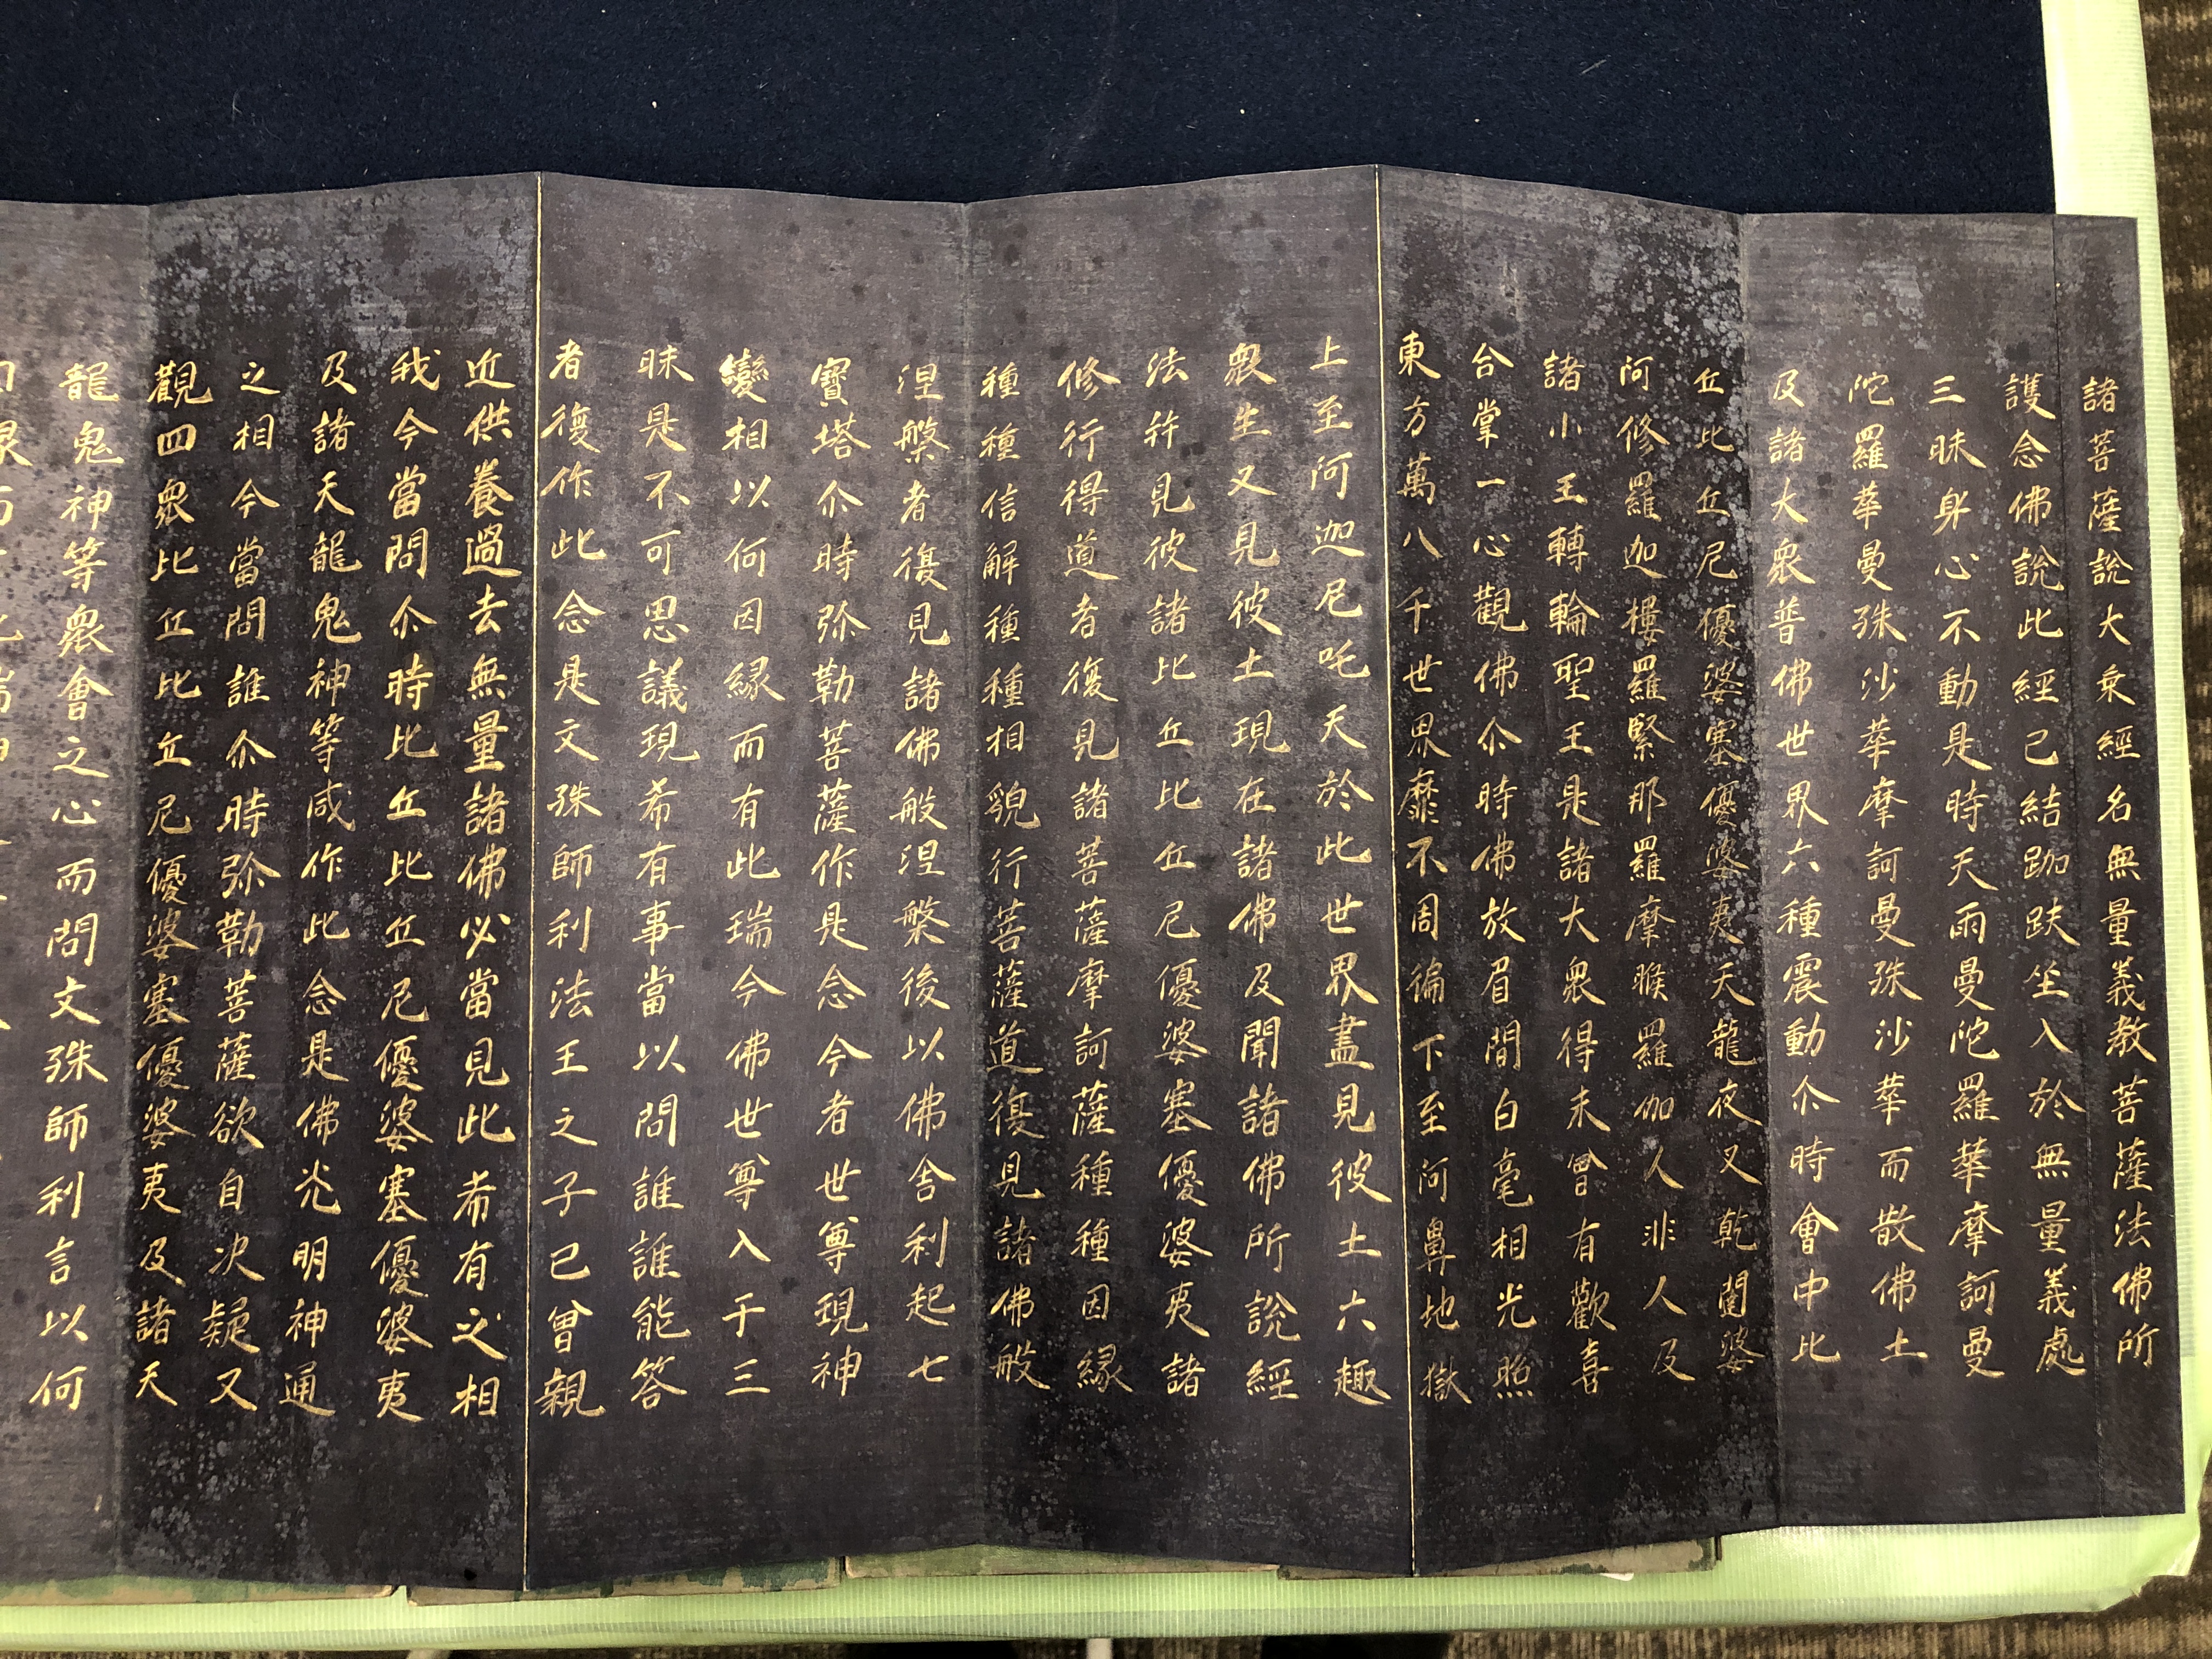 諸菩薩說大乗經名無量義教菩薩法佛所
護念佛說此經已結跏趺坐入於無量義處
三昧身心不動是時天雨曼陀羅華摩訶曼
陀羅華曼殊沙華摩訶曼殊沙華而散佛上
及諸大衆普佛世界六種震動尒時會中比
丘比丘尼優婆塞優婆夷天龍夜叉乾闥婆
阿修羅迦樓羅緊那羅摩睺羅伽人非人及
諸小王轉輪聖王是諸大衆得未曾有歡喜
合掌一心觀佛尒時佛放眉間白毫相光照
東方萬八千世界靡不周徧下至阿鼻地獄
上至阿迦尼吒天於此世界盡見彼土六趣
衆生又見彼土現在諸佛及聞諸佛所說經
法幷見彼諸比丘比丘尼優婆塞優婆夷諸
修行得道者復見諸菩薩摩訶薩種種因緣
種種信解種種相貌行菩薩道復見諸佛般
涅槃者復見諸佛般涅槃後以佛舎利起七
寶塔尒時弥勒菩薩作是念今者世尊現神
變相以何因緣而有此瑞今佛世尊入于三
昧是不可思議現希有事當以問誰誰能答
者復作此念是文殊師利法王之子已曾親
近供養過去無量諸佛必當見此希有之相
我今當問尒時比丘比丘尼優婆塞優婆夷
及諸天龍鬼神等咸作此念是佛光明神通
之相今當問誰尒時弥勒菩薩欲自決疑又
觀四衆比丘比丘尼優婆塞優婆夷及諸天
龍鬼神等衆會之心而問文殊師利言以何